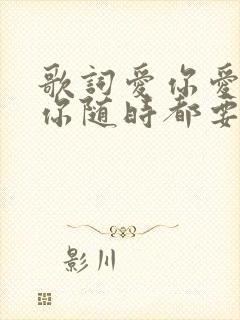 歌詞愛你愛
你随時都要
影川